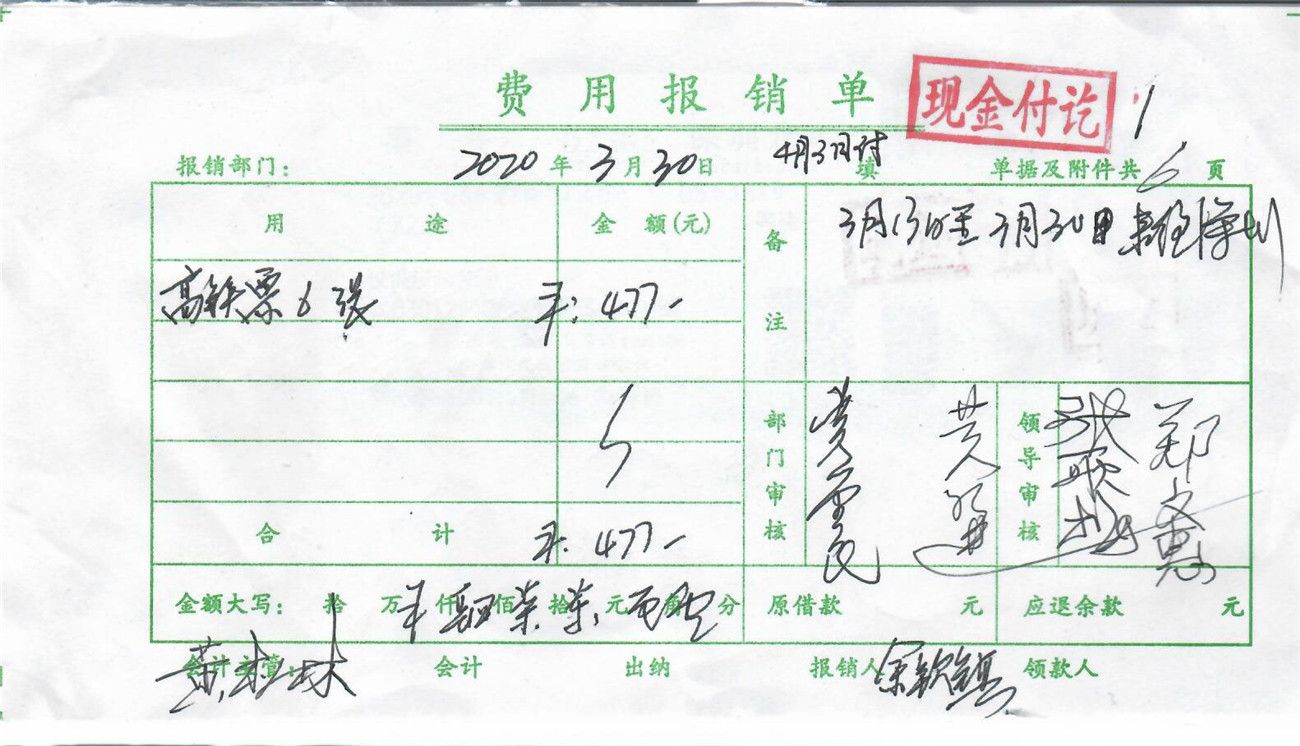 费用报销单
现金付讫
报销部门: 2020年3月30日 4月3日付 填 单据及附件共6页
用途 金额(元) 备注
3月13日至3月30日
高铁票6张 ¥:477-
部门审核 领导审核
合计 ¥:477-
金额大写: 拾万仟肆佰柒拾柒元角分 原借款 元 应退余款 元
会计主管: 会计 出纳 报销人 领款人